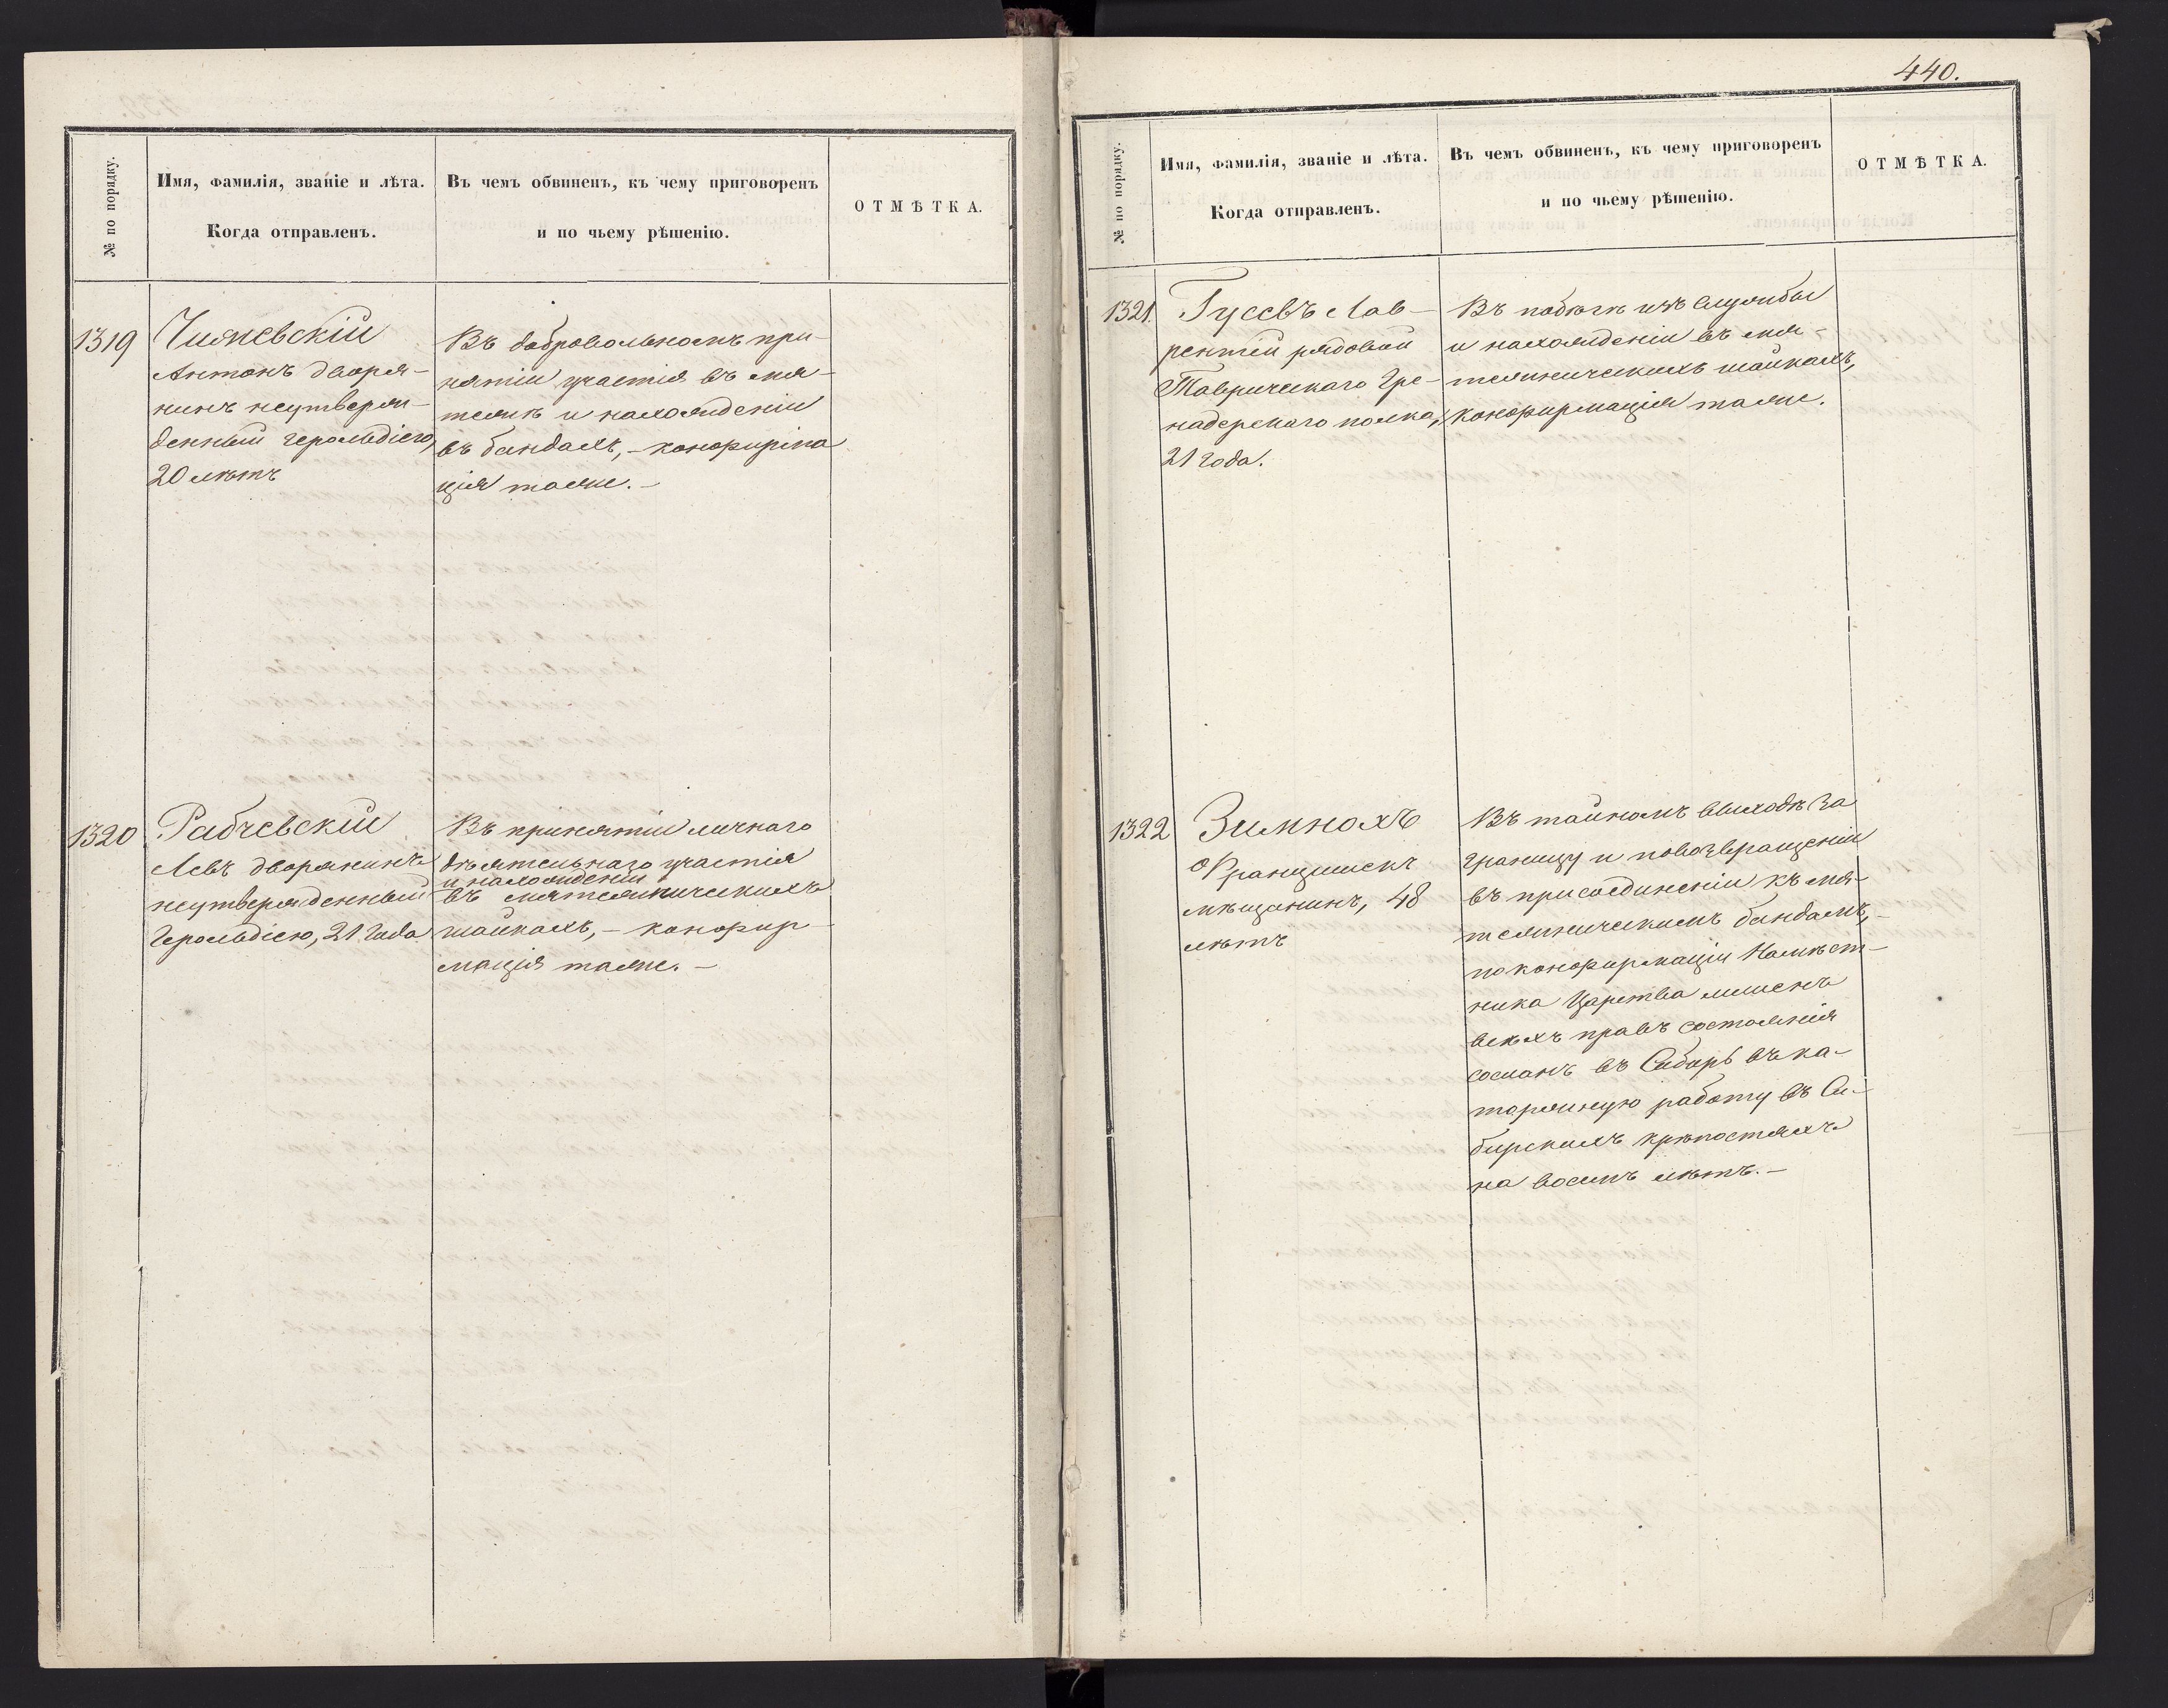 № по порядку.
Имя, фамилія, званіе и лѣта.
Когда отправленъ.
Въ чемъ обвиненъ, къ чему приговоренъ
и по чьему рѣшенію.
ОТМѢТКА.
1319
Чижевскій
Антонъ дворя-
нинъ неутверж-
денный герольдіею,
20 лѣтъ
Въ добровольномъ при-
нятіи участія въ мя-
тежѣ и нахожденіи
въ бандахъ, – конфирма
ція таже. –
1320
Рабчевскій
Левъ дворянинъ
неутвержденный
Герольдіею, 21 года
Въ принятіи личнаго
дѣятельнаго участія
и нахожденіи
въ мятежническихъ
шайкахъ, – конфир-
мація таже. –
440.
№ по порядку.
Имя, фамилія, званіе и лѣта.
Когда отправленъ.
Въ чемъ обвиненъ, къ чему приговоренъ
и по чьему рѣшенію.
ОТМѢТКА.
1321.
Гусевъ Лав-
рентій рядовой
Таврическаго Гре-
надерскаго полка,
21 года.
Въ побѣгѣ изъ службы
и нахожденіи въ мя-
тежническихъ шайкахъ,
конфирмація таже.
1322
Зимнохъ
Францишекъ
мѣщанинъ, 48
лѣтъ
Въ тайномъ выходѣ за
границу и по возвращеніи
въ присоединеніи къ мя-
тежническимъ бандамъ, –
по конфирмаціи Намѣст-
ника Царства лишенъ
всѣхъ правъ состоянія
сосланъ въ Сибирь въ ка-
торжную работу въ Си-
бирскихъ крѣпостяхъ
на восемь лѣтъ. –